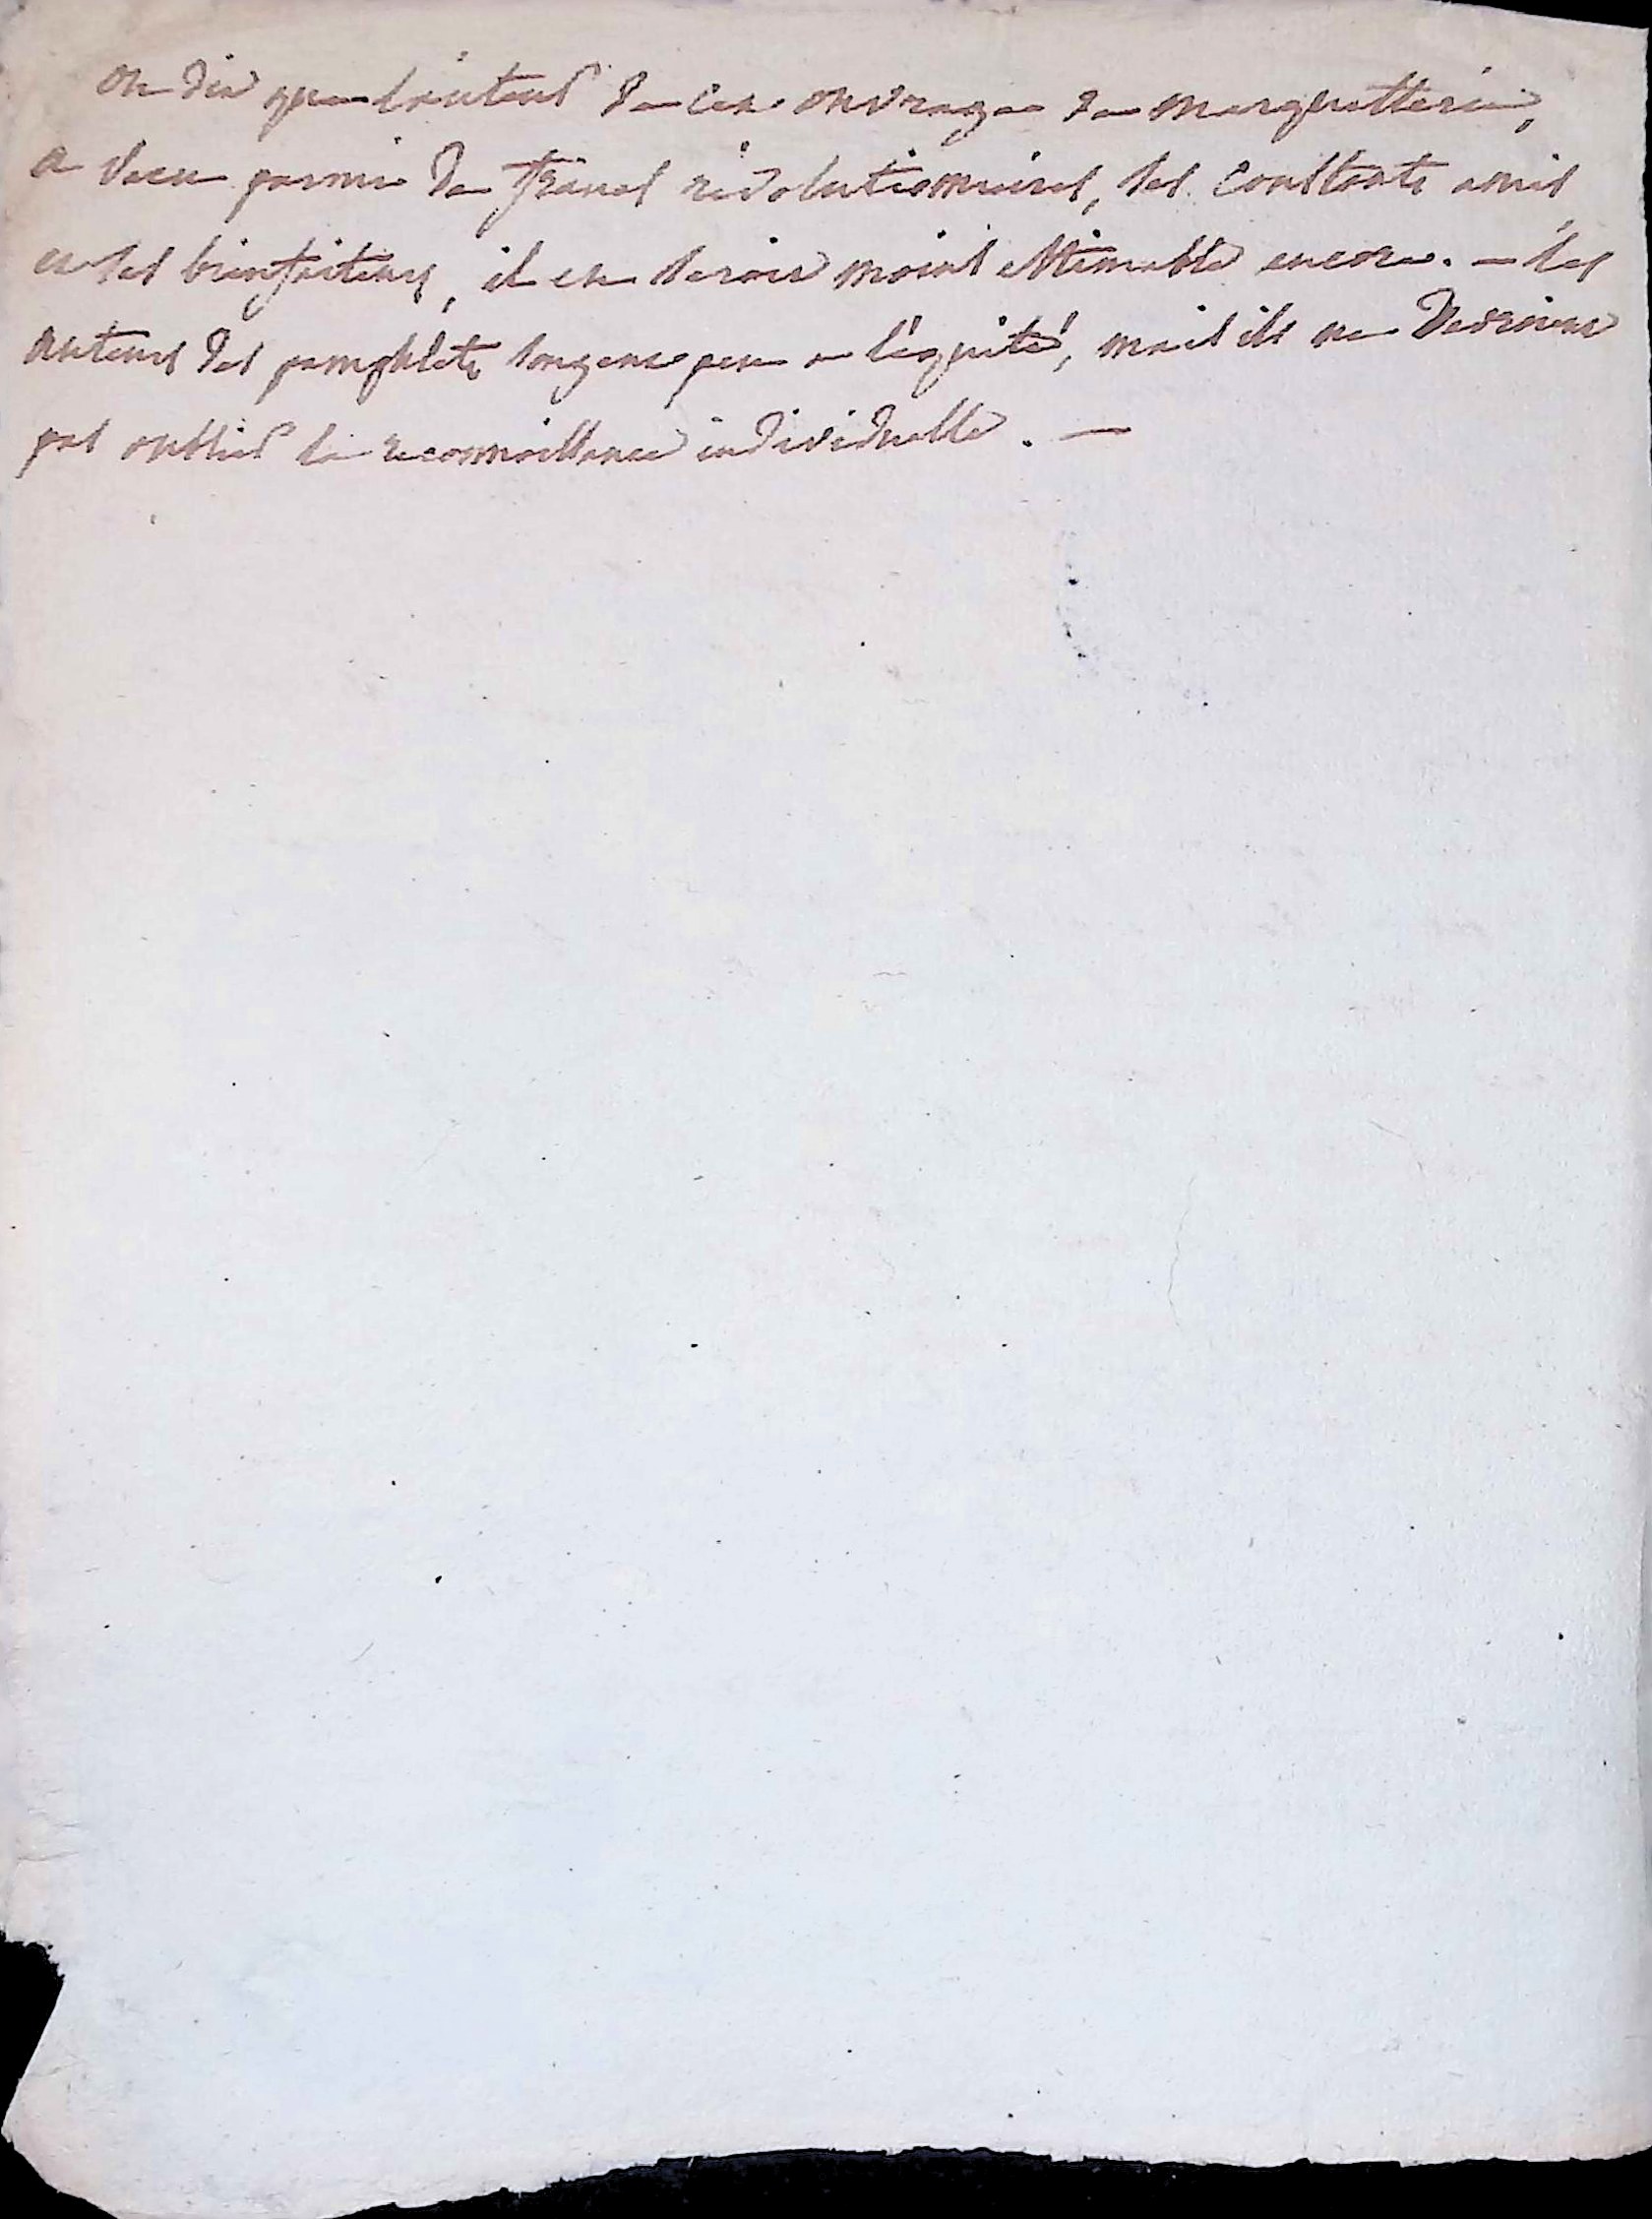 on dit que l'auteur de cet ouvrage de marquetterie,
a vecu parmi de francs révolutionnaires, ses constants amis
et ses bienfaiteurs, il en seroit moins estimable encore. — les
auteurs des pamphlets songent peu a l'équité, mais ils ne devroient
pas oublier la reconnoissance individuelle. —